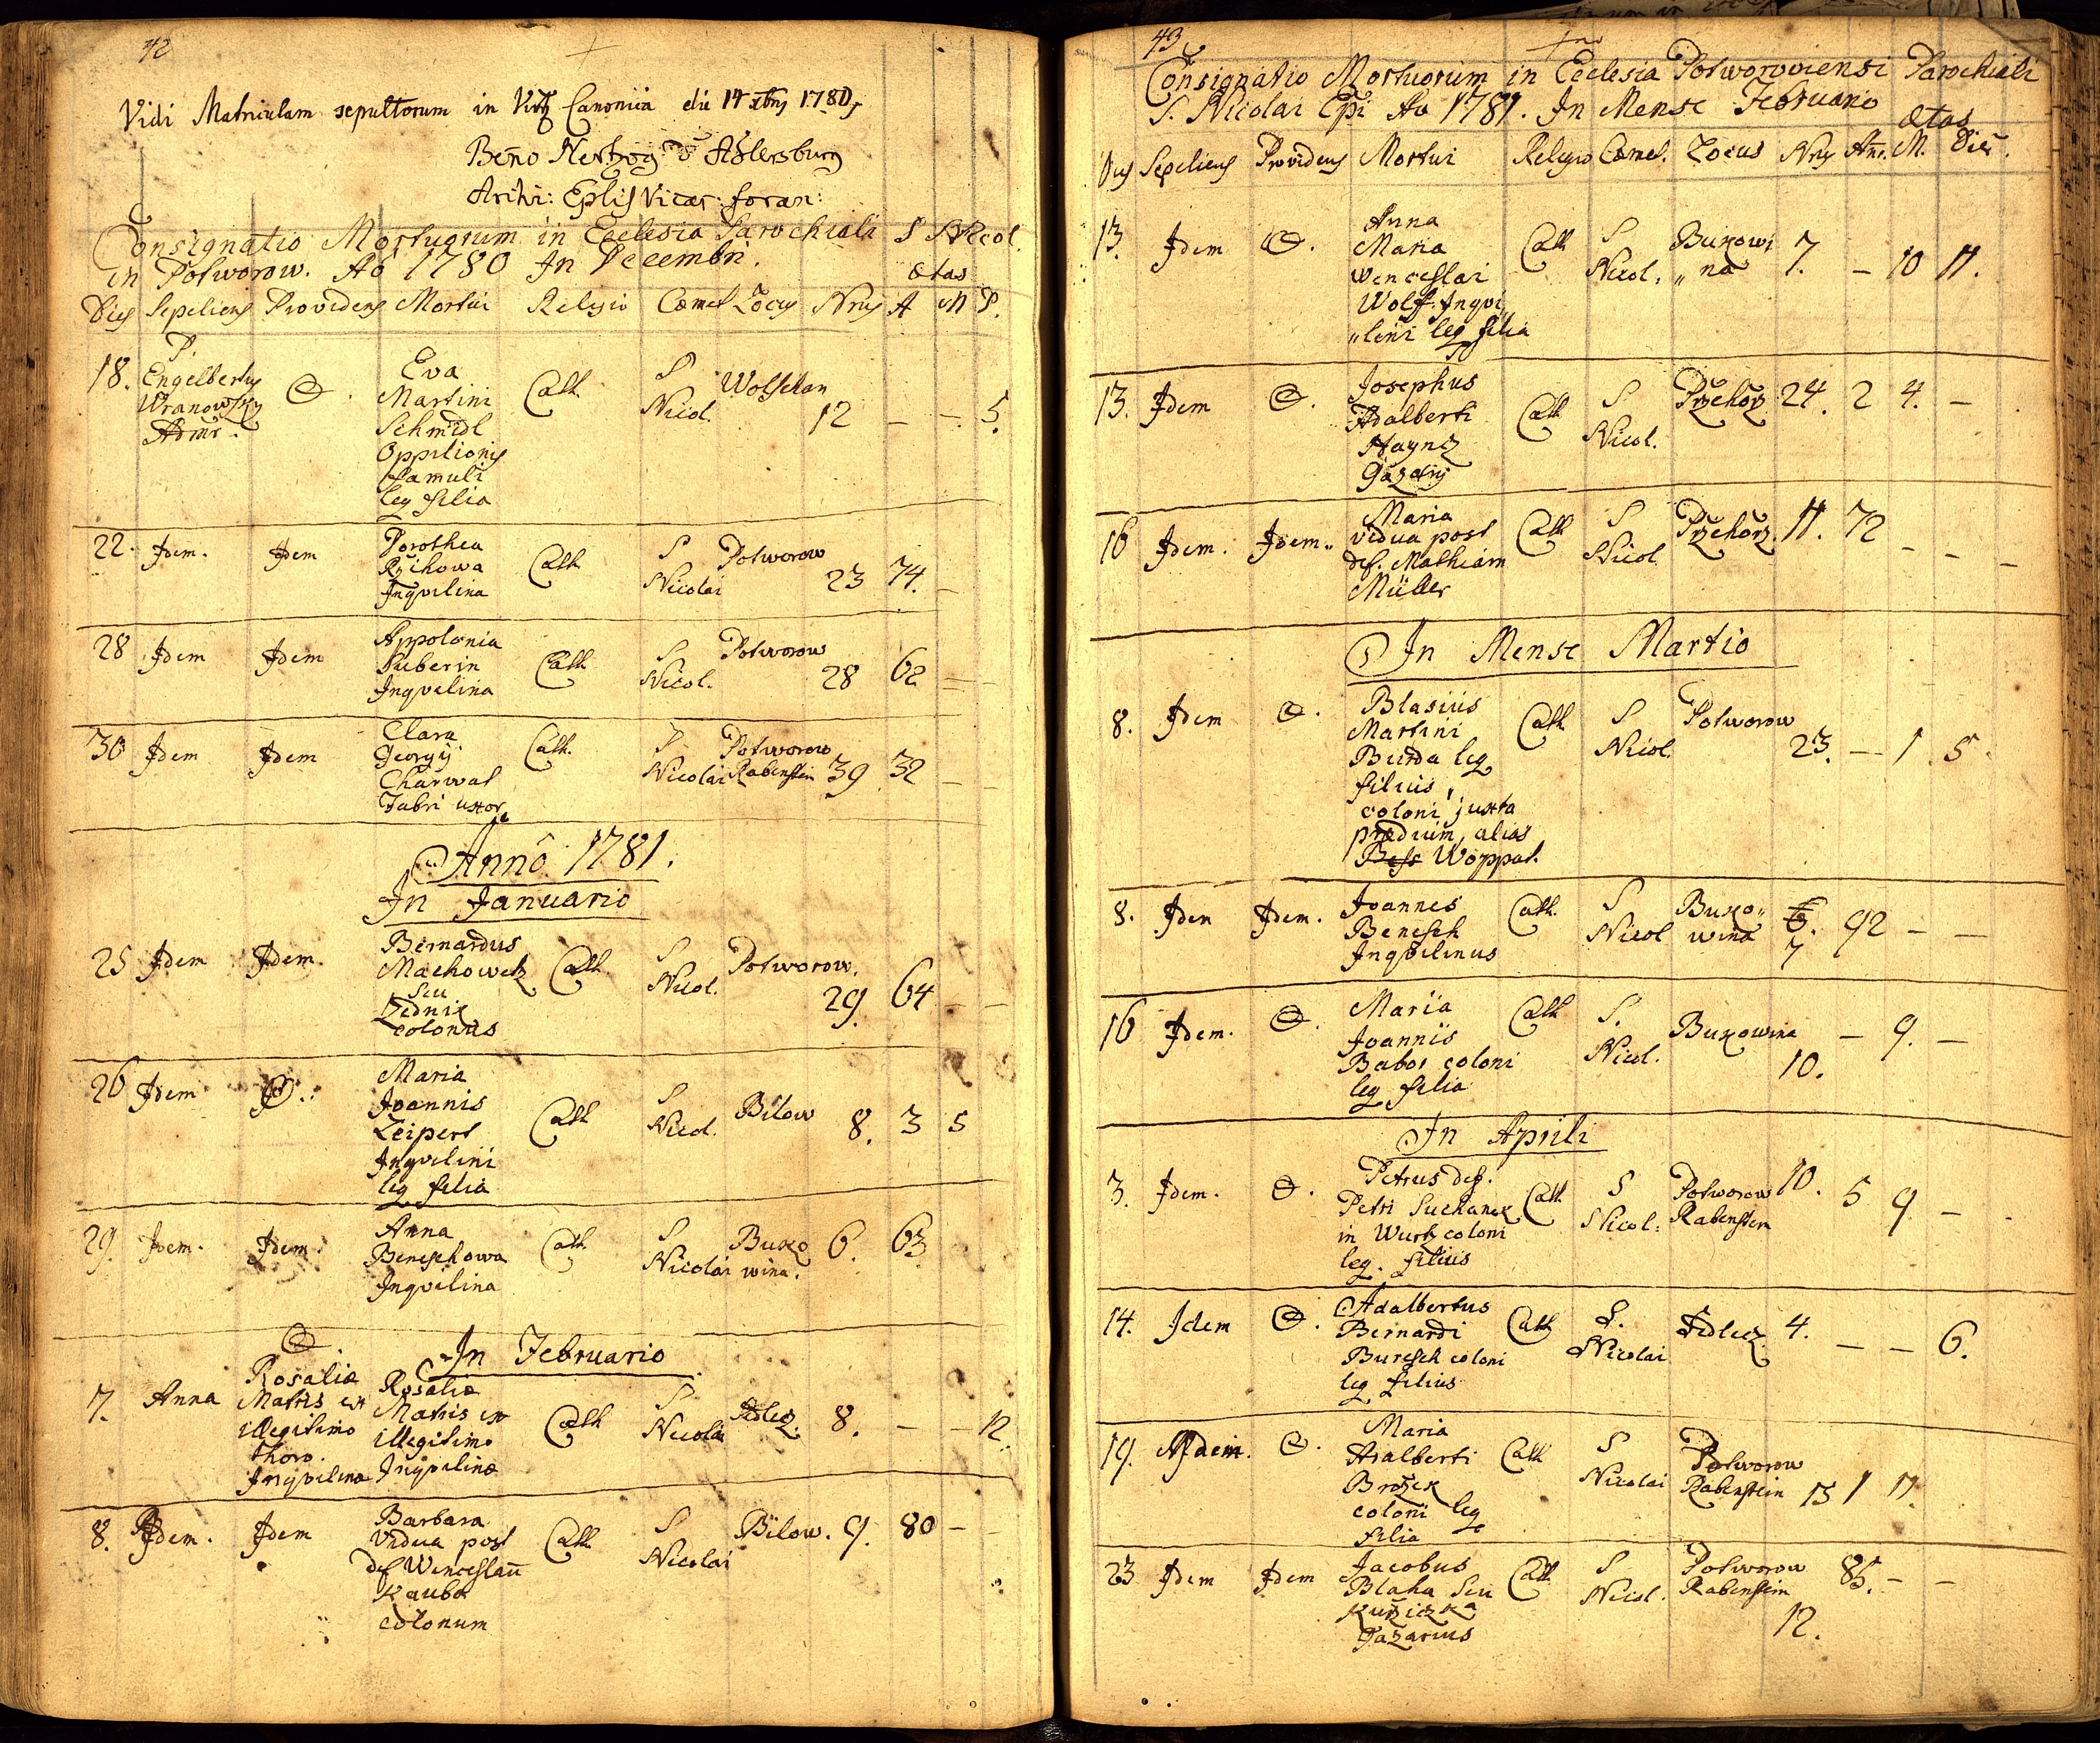 42
Vidi Matriculam sepultorum in Visitõe Canonica die 14 xbris 1780
Beño Hertzog d Adlersburg
Archi: Eplis Vicar: foran:
Consignatio Mortuorum in Ecclesia Parochiali S Nicol.
in Potworow. Ao 1780 In Decembri. ætas
Dies Sepeliens Providens Mortui Religio Cœmet Locus Nrus A M D.
18. P. Engelbertus Wranowsky Admr. Eva Martini Schmidl Oppilionis famuli leg filia Cath S Nicol. Wolschan 12 — — 5.
22. Idem. Idem Dorothea Rzihowa Inqvilina Cath S Nicolai Potworow 23 74. —
28 Idem Idem Appolonia Suberin Inqvilina Cath S Nicol. Potworow 28 62 —
30 Idem Idem Clara Georgij Charwat Fabri uxor Cath. S Nicolai Potworow Rabenstein 39 32 —
Annô 1781.
In Januario
25 Idem Idem. Bernardus Machowetz seu Zednik colonus Cath. S Nicol. Potworow. 29. 64 — —
26 Idem Maria Joannis Zeipert Inqvilini leg filia Cath S Nicol. Bilow 8. 3 5
29. Idem. Idem. Anna Beneschowa Inqvilina Cath. S Nicolai Buko wina. 6. 63
In Februario
7. Anna Rosaliæ Matris ex illegitimo thoro. Inqvilinæ Rosaliæ Matris ex illegitimo Inqvilinæ Cath S Nicolai Sedlecz. 8. — — 12.
8. Idem. Idem Barbara Vidua post def Wenceslaũ Kauba colonum Cath S Nicolai Bilow. 9. 80 — —
43
Consignatio Mortuorum in Ecclesia Potworoviensi Parochiali
S. Nicolai Epi Ao 1781. In Mense Februario ætas
Dies Sepeliens Providens Mortui Religio Cœmet. Locus Nrus Añr. M. Dies.
13. Idem Anna Maria Wenceslai Wolff. Inqvi„ „lini leg filia Cath S Nicol. Bukowi „na 7. — 10 11.
13. Idem Josephus Adalberti Haynz Gazarij Cath S Nicol. Przehorz 24. 2 4. —
16 Idem. Idem.. Maria vidua post def. Mathiam Müller Cath S Nicol Przehorz. 11. 72 — — —
In Mense Martio
8. Idem Blasius Martini Burda leg filius, coloni juxta prædium, alias Bess Woppat. Cath. S Nicol. Potworow 23. — 1 5
8. Idem Idem. Joannes Benesch Inqvilinus Cath. S Nicol Buko„ wina 6. 7 92 — —
16 Idem. Maria Joannis Babor coloni leg filia Cath S. Nicol. Bukowina 10. — 9. —
In Aprili
3. Idem. Petrus def. Petri Suchanek in Wurtz coloni leg. filius Cath S Nicol: Potworow Rabenstein 10. 5 9 —
14. Idem Adalbertus Bernardi Buresch coloni leg filius Cath S. Nicolai Sedlecz. 4. — — 6.
19. Idem. Maria Adalberti Brožek coloni leg filia Cath S Nicolai Potworow Rabenstein 13 1 11.
23 Idem Idem Jacobus Blaha seu Kužiczka Gazarius Cath S Nicol. Potworow Rabenstein 12. 85. — —